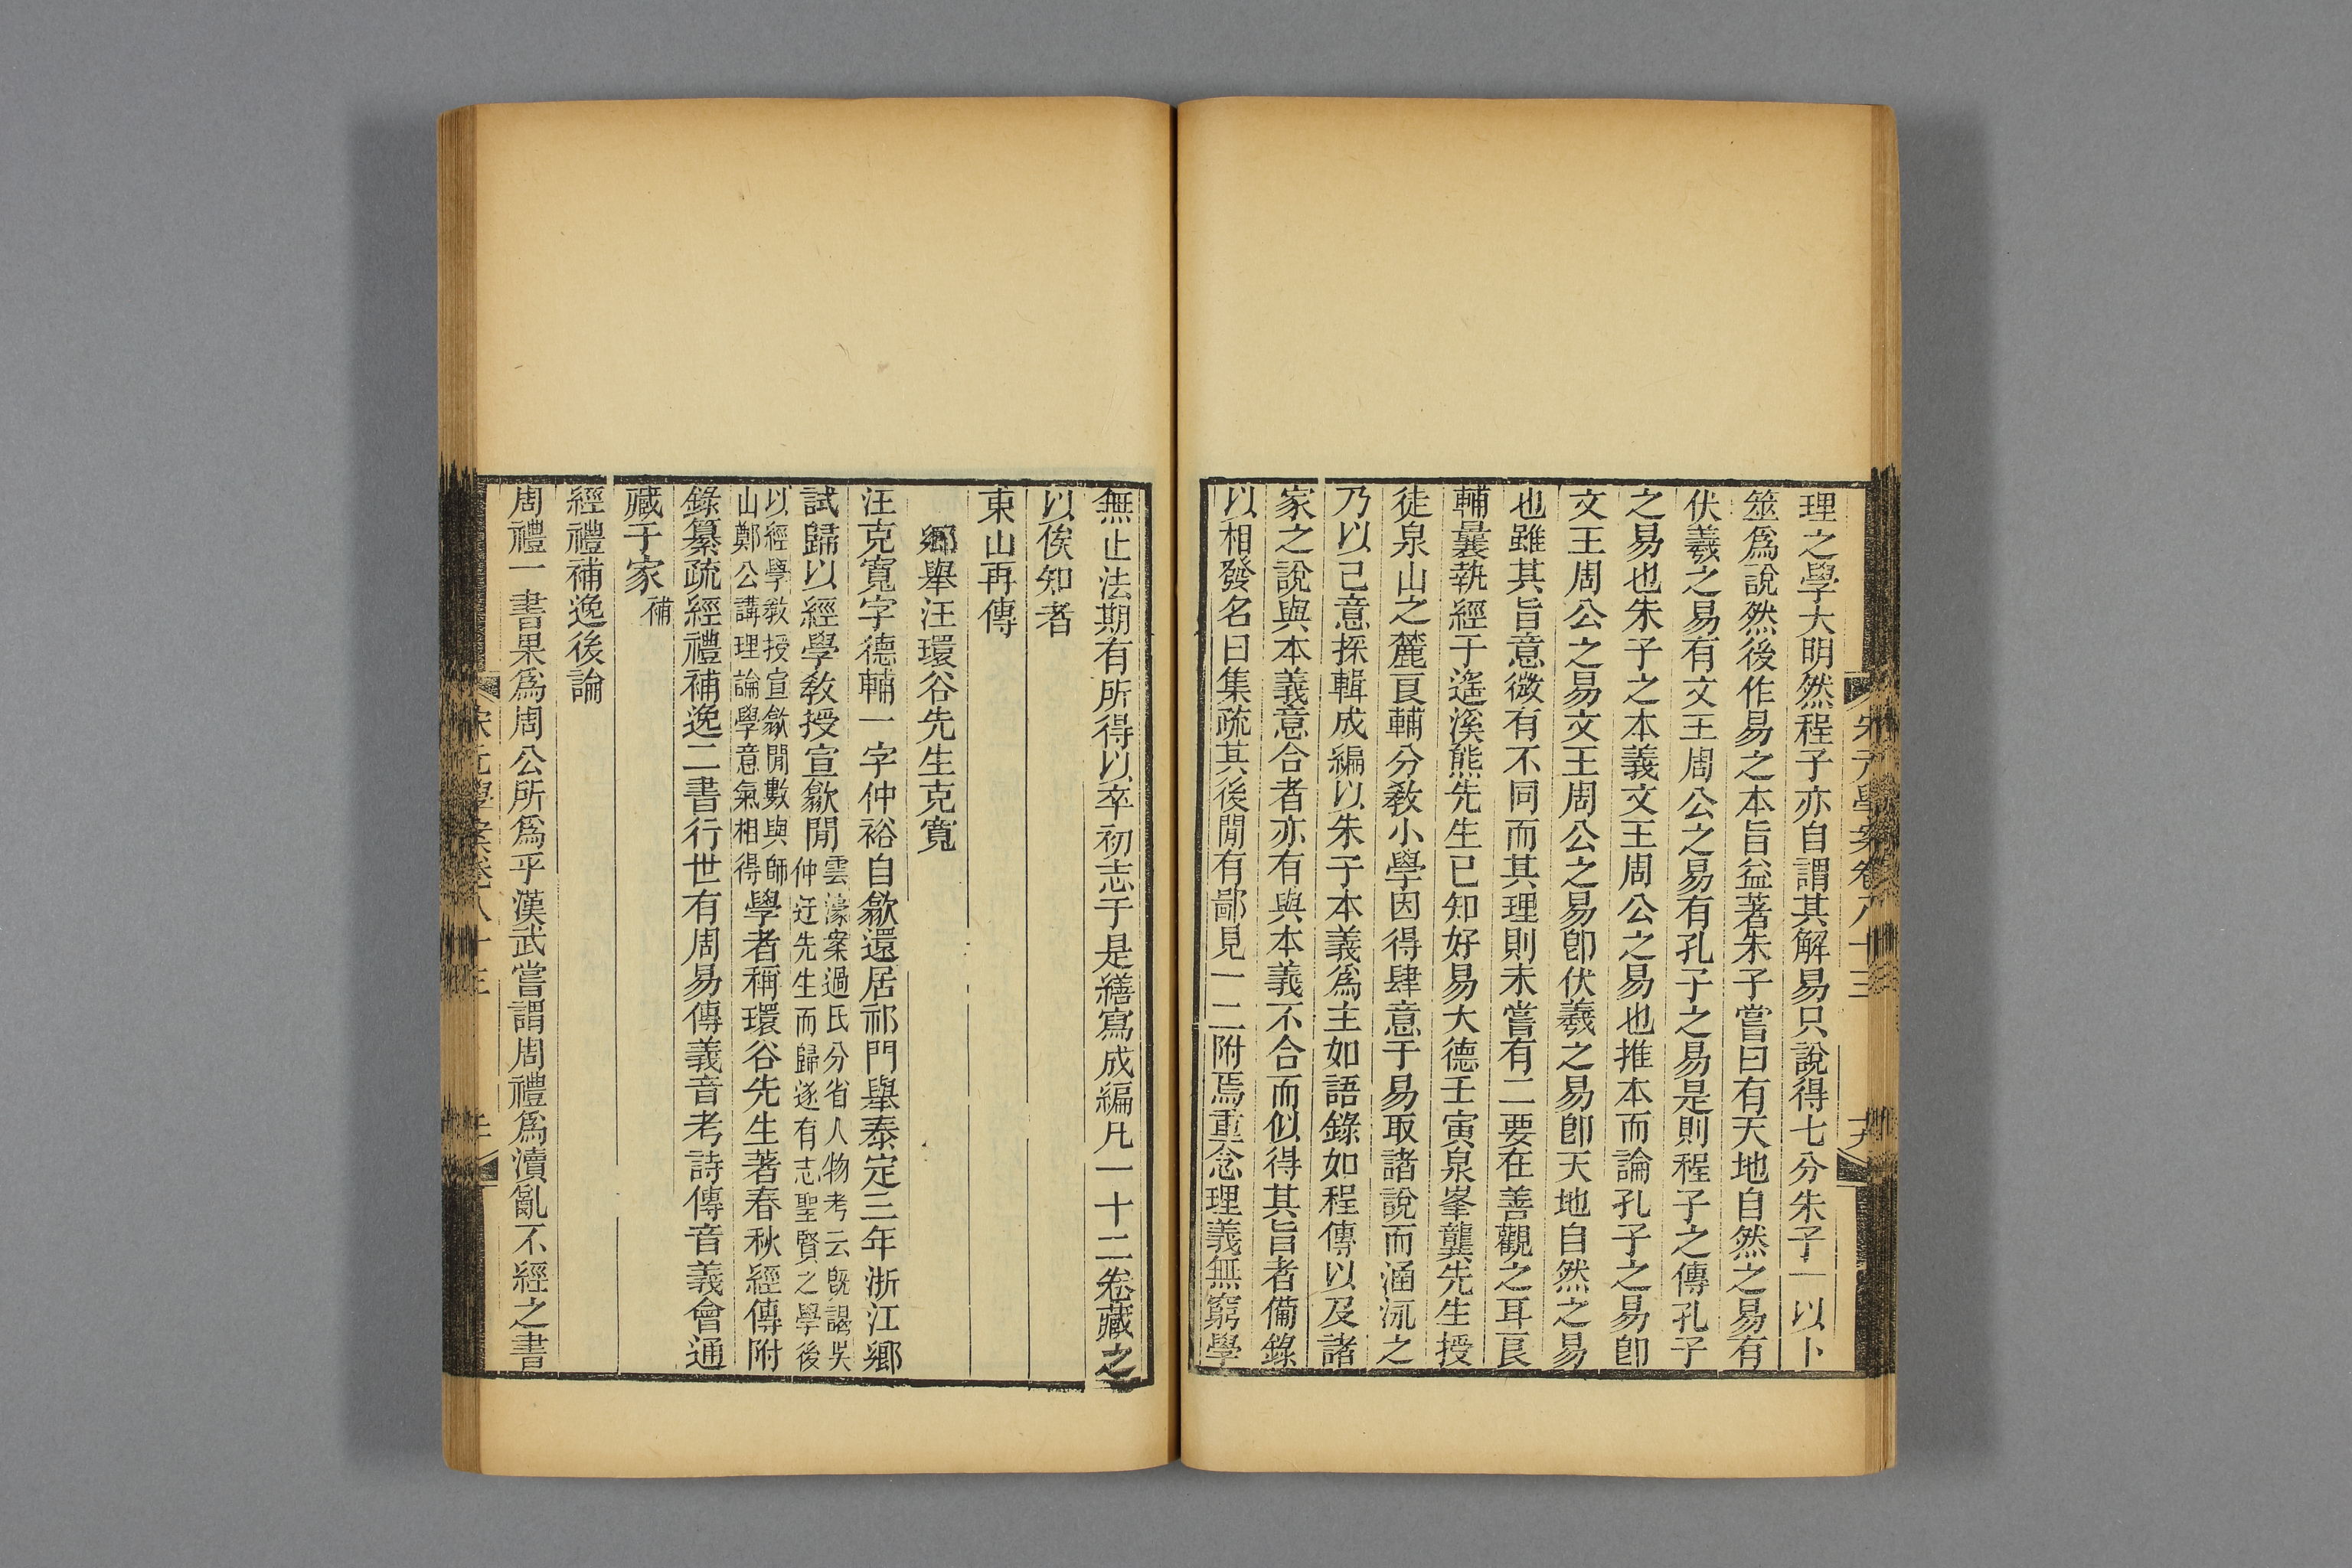 理之學大明然程子亦自謂其解易只說得七分朱子一以卜
筮爲說然後作易之本旨益著朱子嘗曰有天地自然之易有
伏羲之易有文王周公之易有孔子之易是則程子之傳孔子
之易也朱子之本義文王周公之易也推本而論孔子之易卽
文王周公之易文王周公之易卽伏羲之易卽天地自然之易
也雖其旨意微有不同而其理則未嘗有二要在善觀之耳良
輔曩執經于遙溪熊先生已知好易大德壬寅泉峯龔先生授
徒泉山之麓良輔分敎小學因得肆意于易取諸說而涵泳之
乃以己意採輯成編以朱子本義爲主如語錄如程傳以及諸
家之說與本義意合者亦有與本義不合而似得其旨者備錄
以相發名曰集疏其後閒有鄙見一二附焉重念理義無窮學
無止法期有所得以卒初志于是繕寫成編凡一十二卷藏之
以俟知者
東山再傳
鄉舉汪環谷先生克寬
汪克寬字德輔一字仲裕自歙還居祁門舉泰定三年浙江鄉
試歸以經學敎授宣歙閒
雲濠案過氏分省人物考云旣謁吳
仲迂先生而歸遂有志聖賢之學後
以經學敎授宣歙閒數與師
山鄭公講理論學意氣相得
學者稱環谷先生著春秋經傳附
錄纂疏經禮補逸二書行世有周易傳義音考詩傳音義會通
藏于家補
經禮補逸後論
周禮一書果爲周公所爲乎漢武嘗謂周禮爲瀆亂不經之書